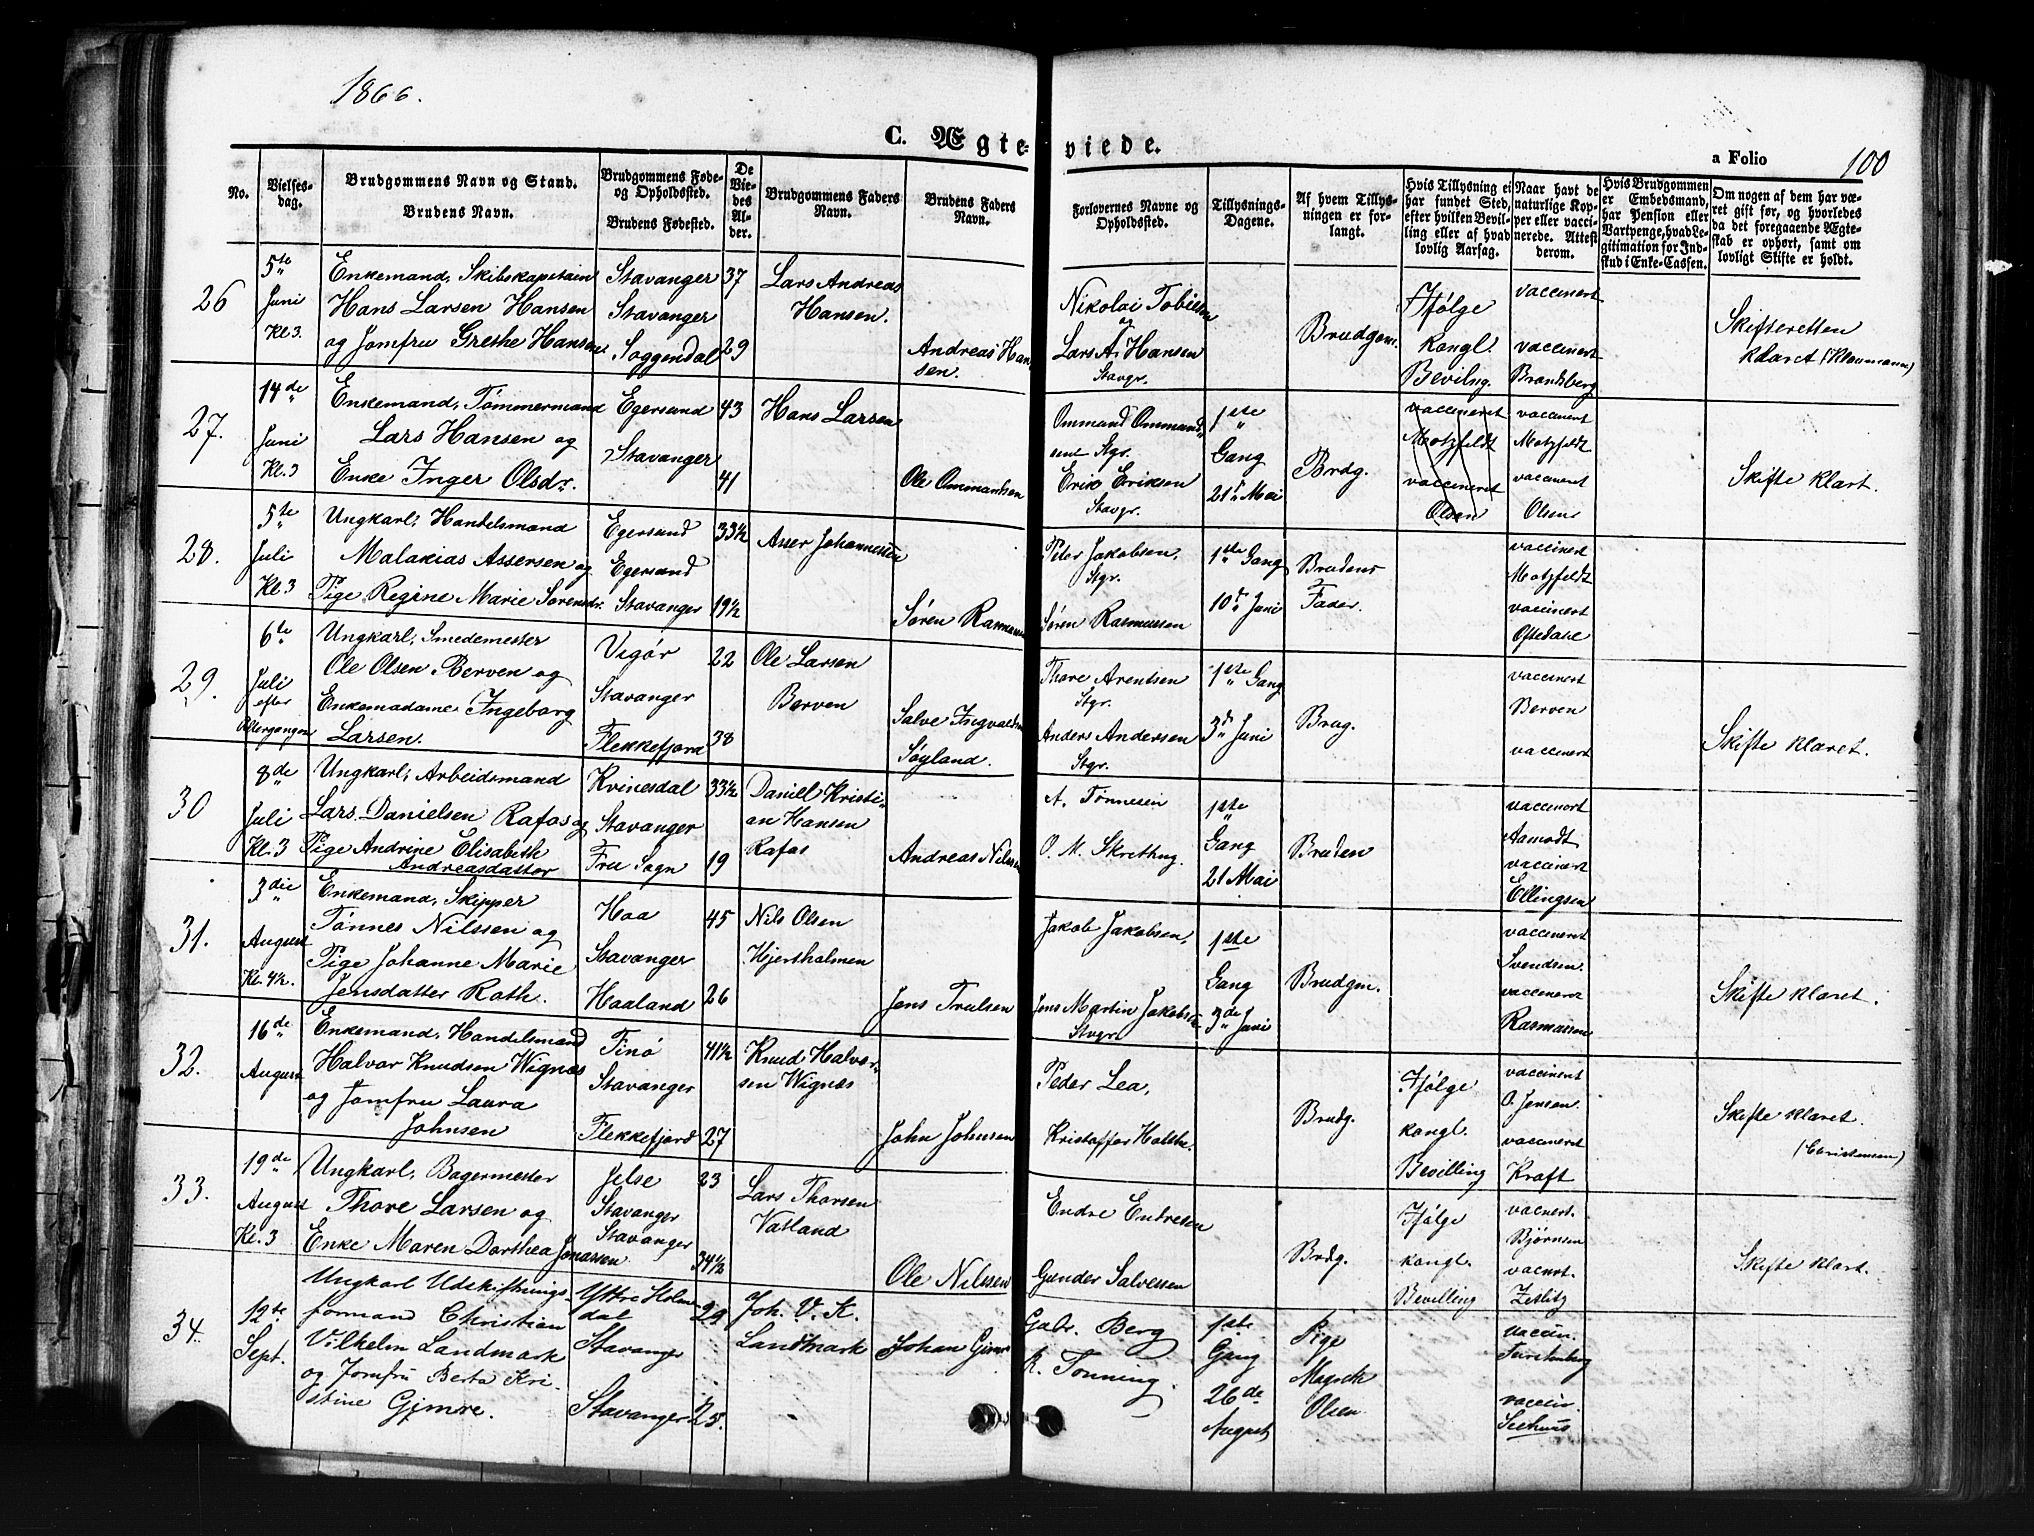 1866.
C. Ægteviede.
a Folio 100
No.
Vielses-
dag.
Brudgommens Navn og Stand.
Brudens Navn.
Brudgommens Føde-
og Opholdssted.
Brudens Fødested.
De
Vie-
des
Al-
der.
Brudgommens Faders
Navn.
Brudens Faders
Navn.
Forlovernes Navne og
Opholdssted.
Tillysnings-
Dagene.
Af hvem Tillys-
ningen er for-
langt.
Hvis Tillysning ei
har fundet Sted,
efter hvilken Bevil-
ling eller af hvad
lovlig Aarsag.
Naar havt de
naturlige Kop-
per eller vacci-
nerede. Attest
derom.
Hvis Brudgommen
er Embedsmand,
har Pension eller
Vartpenge, hvad Le-
gitimation for Ind-
skud i Enke-Cassen.
Om nogen af dem har væ-
ret gift før, og hvorledes
da det foregaaende Ægte-
skab er ophørt, samt om
lovligt Skifte er holdt.
26
5te
Juni
Kl. 3.
Enkemand, Skibskapitain
Hans Larsen Hansen
og Jomfru Grethe Hansen
Stavanger
Stavanger
Soggendal
37
29
Lars Andreas
Hansen.
Andreas Han
sen.
Nikolai Tobiesen
og
Lars A. Hansen
Stavgr.
Brudgom.
Ifølge
kongl.
Bevilng.
vaccinert
vaccinert
Brandsberg
Skifteretten
klaret (Klaumann)
27.
14de
Juni
Kl. 3
Enkemand, Tømmermand
Lars Hansen og
Enke Inger Olsdr.
Egersund
Stavanger
43
41
Hans Larsen
Ole Ommundsen
Ommund Ommund-
sen Stgr.
Erik Eriksen
Stavgr.
1ste
Gang
21d Mai
Brdg.
vaccineret
Motzfeldt
vaccineret
Olsen
vaccinert
Motzfeldt
vaccinert
Olsen
Skifte klart.
28.
5te
Juli
Kl. 3
Ungkarl, Handelsmand
Malakias Assersen og
Pige Regine Marie Sørensdr.
Egersund
Egersund
Stavanger
33½
19½
Asser Johannesen
Søren Rasmussen
Peder Jakobsen,
Stgr.
Søren Rasmussen
1ste Gang
10d Juni
Brudens
Fader.
vaccinert
Motzfeldt
vaccinert
Oftedahl
29.
6te
Juli
efter
Altergangen
Ungkarl, Smedemester
Ole Olsen Berven og
Enkemadame Ingeborg
Larsen.
Vigør
Stavanger
Flekkefjord
22
38
Ole Larsen
Berven
Salve Ingvaldsen
Søyland.
Thore Arentsen
Stgr.
Anders Andersen
Stgr.
1ste Gang
3d Juni
Brug.
vaccinert
Berven
vaccinert
Skifte klaret.
30
8de
Juli
Kl. 3
Ungkarl, Arbeidsmand
Lars Danielsen Rafos og
Pige Andrine Elisabeth
Andreasdatter
Kvinesdal
Stavanger
Fru Sogn
33½
19
Daniel Kristi-
an Hansen
Rafos
Andreas Nilssen
A. Tønnesen
O. M. Skretting.
1ste
Gang
21 Mai
Bruden
vaccinert
Aamodt
vaccinert
Ellingsen
31.
3die
August
Kl. 4½.
Enkemand, Skipper
Tønnes Nilssen og
Pige Johanne Marie
Jensdatter Roth.
Haa
Stavanger
Haaland
45
26
Nils Olsen
Hjertholmen
Jens Trulsen
Jakob Jakobsen,
Jens Martin Jakobsen
Stvgr.
1ste
Gang
3de Juni
Brudgm.
vaccineret
Svendsen.
vaccineret
Rasmussen
Skifte klaret.
32.
16de
August
Enkemand, Handelsmand
Halvor Knudsen Wignæs
og Jomfru Laura
Johnsen
Finø
Stavanger
Flekkefjord
41½
27
Knud Halvor-
sen Wignæs
John Johnsen
Peder Lea,
Kristoffer Holste.
Brudg.
Ifølge
kongl.
Bevilling
vaccinert
O. Jensen.
vaccineret
Kraft
Skifte klaret.
(Christensen)
33.
19de
August
Kl. 3
Ungkarl, Bagermester
Thore Larsen og
Enke Maren Dorthea Jonassen.
Jelse
Stavanger
Stavanger
23
34½
Lars Thorsen
Vatland
Ole Nilssen
Endre Endresen
Gunder Salvesen
Brdg.
Ifølge
kongl.
Bevilling
vacnert.
Bjørnsen
vacnert.
Zetlitz
Skifte klart.
34.
12te
Sept.
Ungkarl Udskiftnings
formand Christian
Vilhelm Landmark
og Jomfru Berta Kri-
stine Gjemre.
Yttre Holme
dal
Stavanger
Stavanger
29
25.
Joh. V. K.
Landmark
Johan Gjemre
Gabr. Berg
K. Tonning.
1ste
Gang
26de
August
Pige
Magrete
Olsen
vaccin.
Furstenberg
vaccin.
Seehuus